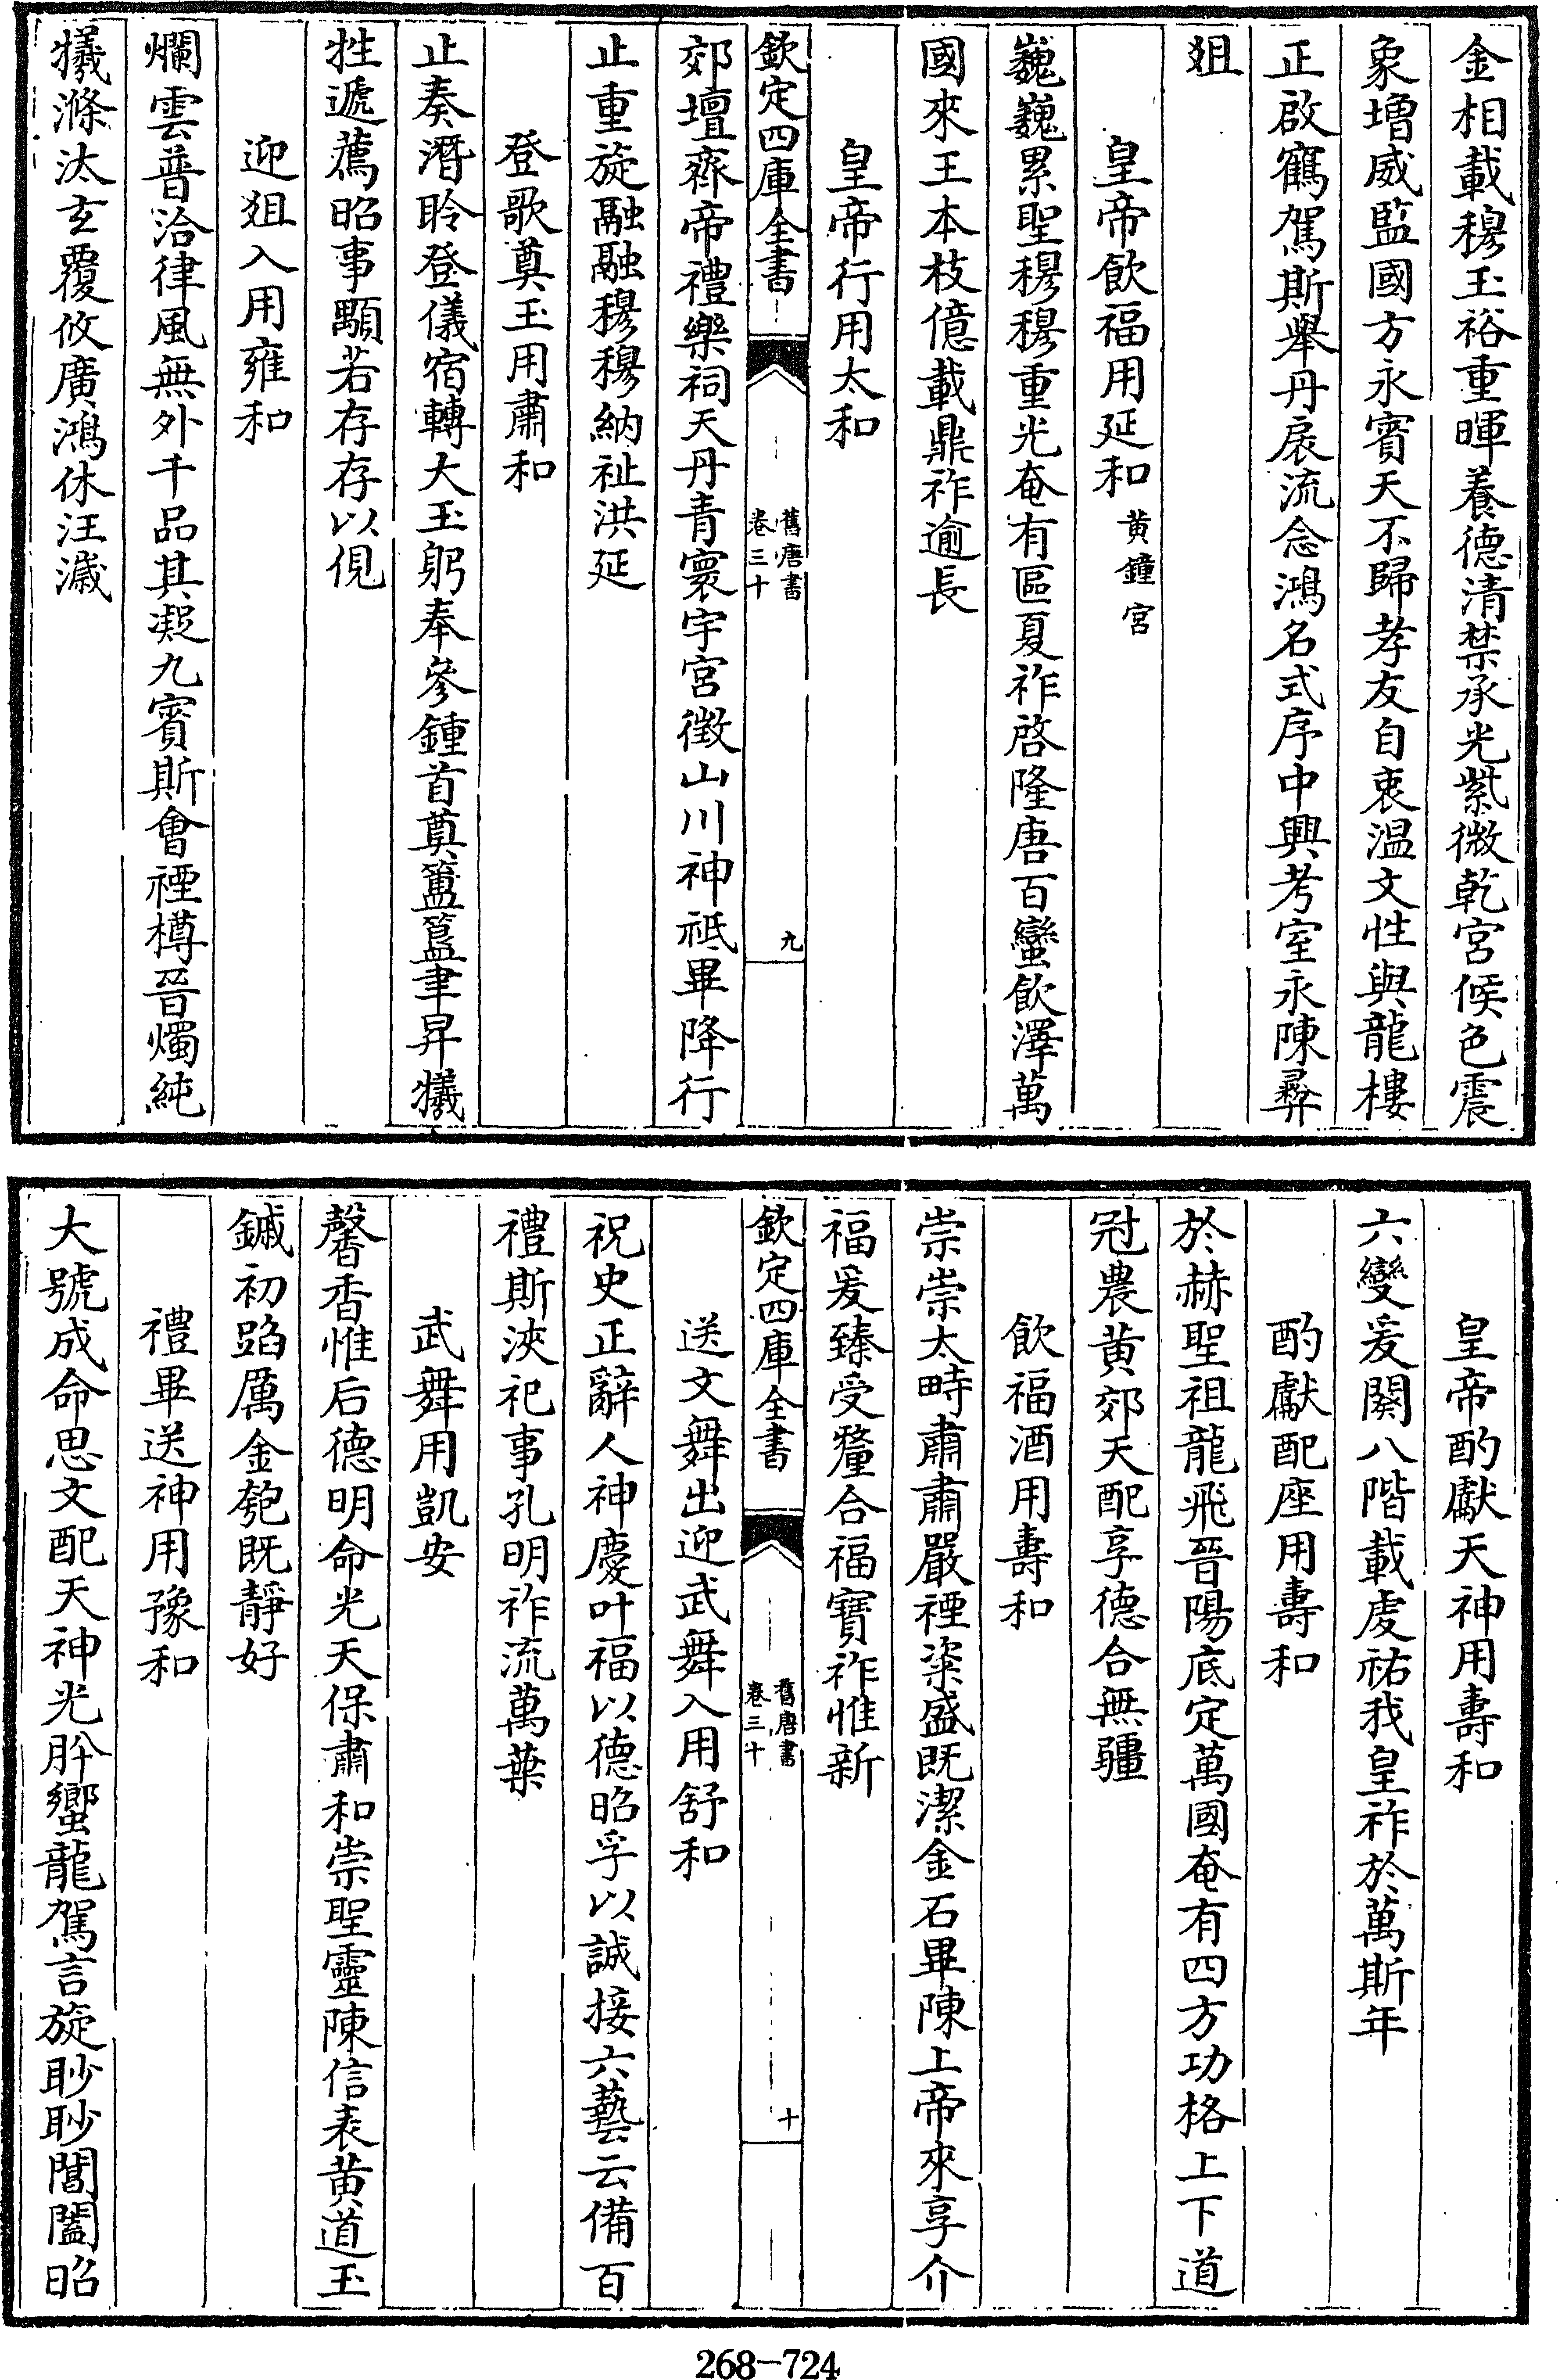 金相載穆玉裕重暉養德清禁承光紫微乾宮候色震
象増威監國方永賓天不歸孝友自衷温文性與龍樓
正啟鶴駕斯舉丹扆流念鴻名式序中興考室永陳彛
俎
皇帝飲福用延和黄鐘宮
巍巍累聖穆穆重光奄有區夏祚啓隆唐百蠻飲澤萬
國來王本枝億載鼎祚逾長
皇帝行用太和
欽定四庫全書
舊唐書
卷三十
九
郊壇齊帝禮樂祠天丹青寰宇宮徵山川神祇畢降行
止重旋融融穆穆納祉洪延
登歌奠玉用肅和
止奏潛聆登儀宿轉大玉躬奉參鍾首奠簠簋聿昇犧
牲遞薦昭事顒若存存以俔
迎俎入用雍和
爛雲普洽律風無外千品其凝九賓斯會禋樽晉燭純
犧滌汰玄覆攸廣鴻休汪濊
皇帝酌獻天神用壽和
六變爰闋八階載䖍祐我皇祚於萬斯年
酌獻配座用壽和
於赫聖祖龍飛晉陽底定萬國奄有四方功格上下道
冠農黄郊天配享德合無疆
飲福酒用壽和
崇崇太畤肅肅嚴禋粢盛既潔金石畢陳上帝來享介
福爰臻受釐合福寶祚惟新
欽定四庫全書
舊唐書
卷三十
十
送文舞出迎武舞入用舒和
祝史正辭人神慶叶福以德昭孚以誠接六藝云備百
禮斯浹祀事孔明祚流萬葉
武舞用凱安
馨香惟后德明命光天保肅和崇聖靈陳信表黄道玉
鏚初蹈厲金匏既靜好
禮畢送神用豫和
大號成命思文配天神光肸蠁龍駕言旋眇眇閶闔昭
268-724